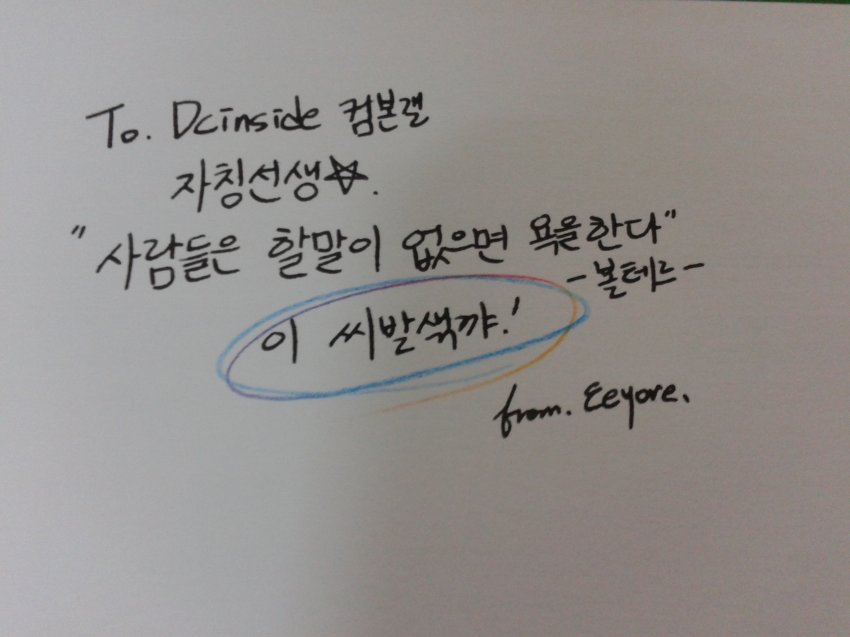 To. Dcinside 컴본갤
자칭선생☆.
"사람들은 할말이 없으면 욕을한다"
-볼테르-
이 씨발쌕꺄!
from. Eeyore.